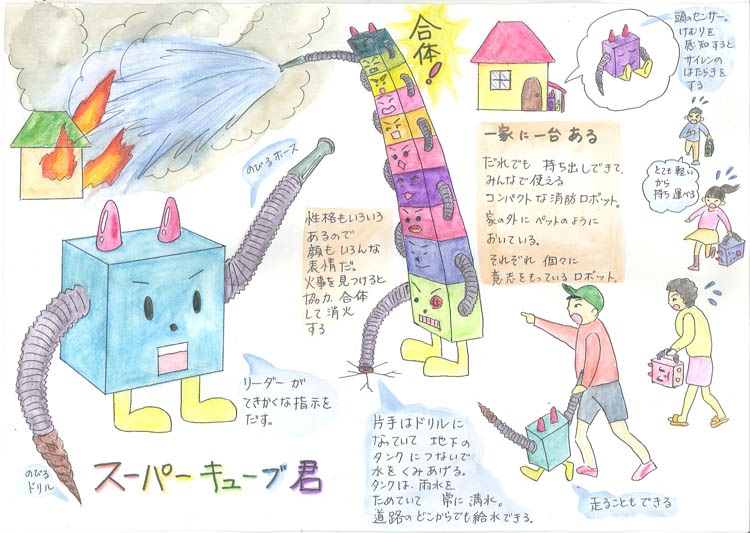 合体!
頭のセンサー。
けむりを
感知すると
サイレンの
はたらきを
する
一家に一台ある
だれでも 持ち出しできて、
みんなで使える
コンパクトな消防ロボット。
家の外にペットのように
おいている。
それぞれ 個々に
意志をもっているロボット。
とても軽い
から
持ち運べる
のびるホース
性格もいろいろ
あるので
顔もいろんな
表情だ。
火事を見つけると
協力、合体
して消火
する
リーダーが
てきかくな指示を
だす。
のびる
ドリル
スーパーキューブ君
片手はドリルに
なっていて 地下の
タンクにつないで
水をくみあげる。
タンクは、雨水を
ためていて 常に満水。
道路のどこからでも給水できる。
走ることもできる